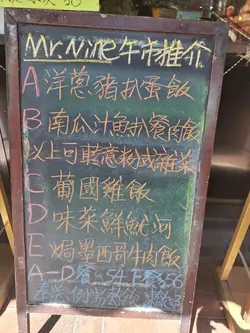 Mr. Nine 午市推介
A 洋蔥豬扒蛋飯
B 南瓜汁魚扒餐肉飯
以上可轉意粉或雜菜
C 葡國雞飯
D 味菜鮮魷河
E 焗墨西哥牛肉飯
A-D餐 54 下餐56